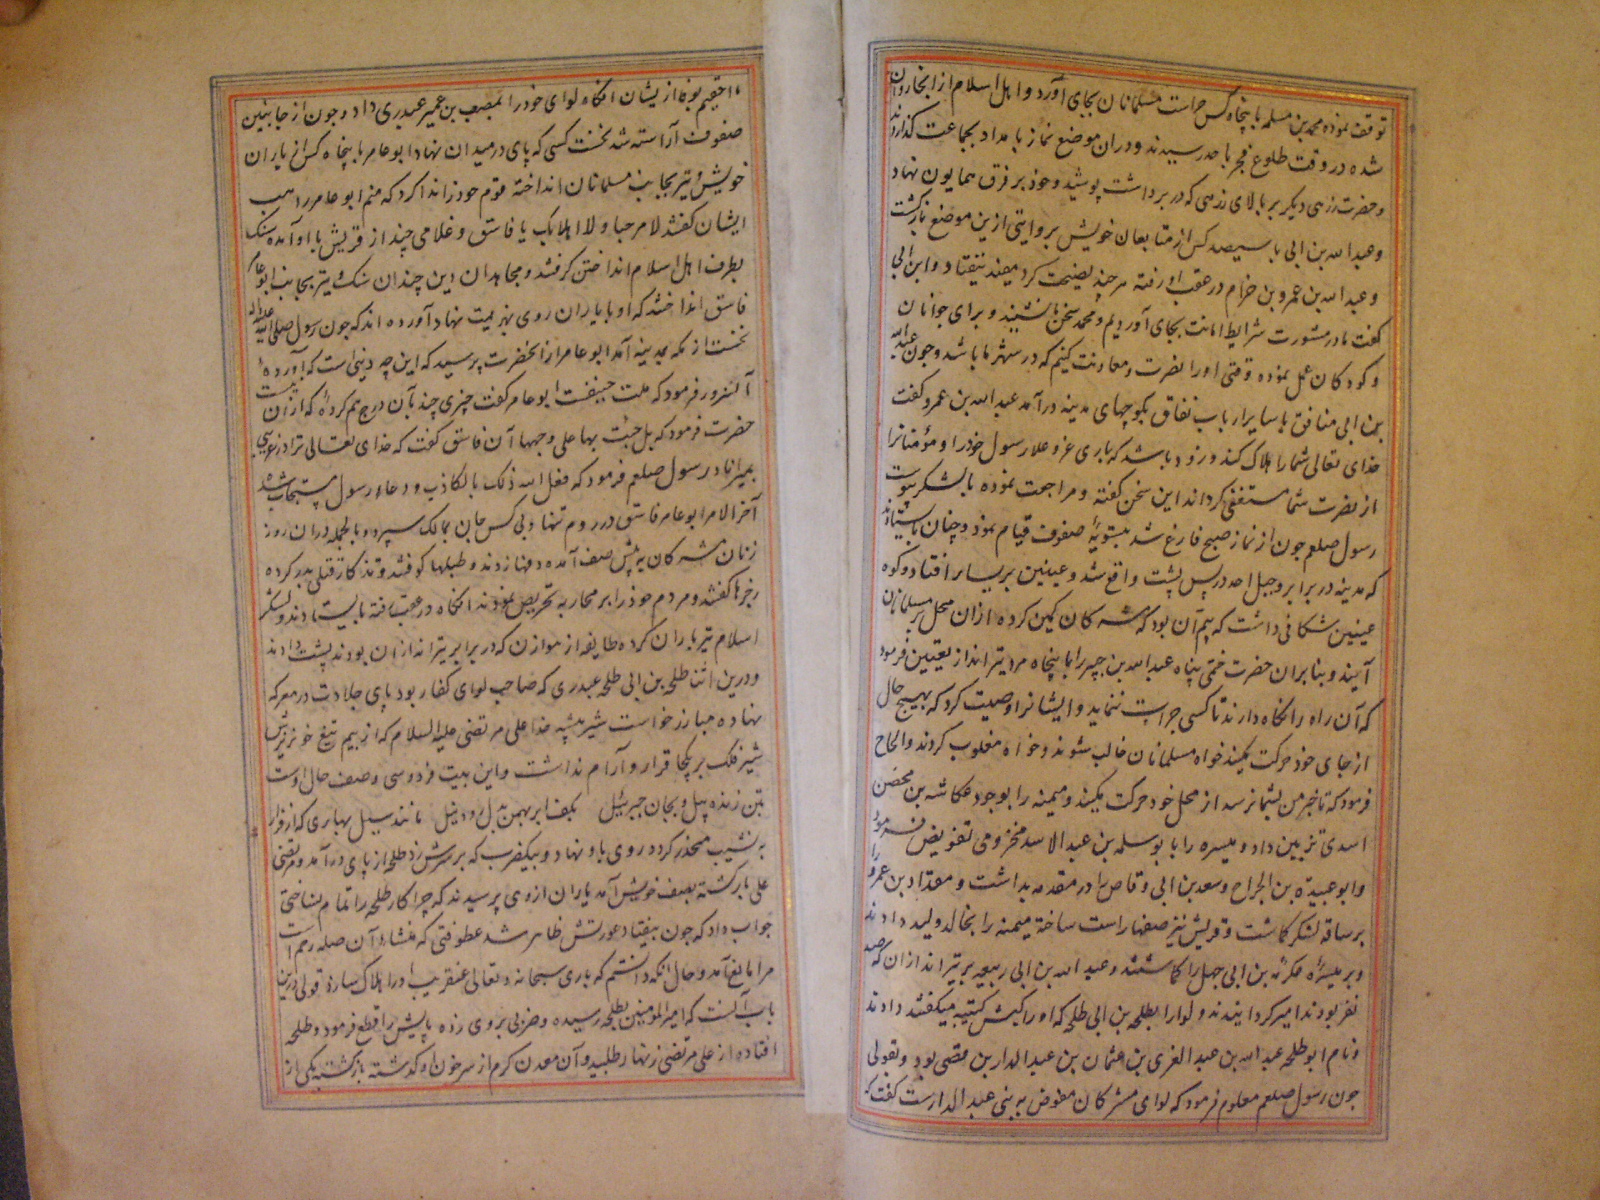 توقف نموده محمد بن مسلمه با پنجاه کس حراست مسلمانان بجای آورد و اهل اسلام از انجا روان
شده در وقت طلوع فجر باحد رسیدند و در ان موضع نماز بامداد بجماعت گذاردند
و حضرت زرهی دیکر بر بالای زرهی که در بر داشت پوشید و خود بر فرق همایون نهاد
و عبد الله بن ابی با سیصد کس از متابعان خویش بروایتی ازین موضع بازگشت
و عبد الله بن عمرو بن حزام در عقب او رفته هر چند نصیحت کرد مفید نیفتاد و ابن ابی
گفت ما در مشورت شرایط امانت بجای آوردیم و محمد سخن ما نشنید و برای جوانان
و کودکان عمل نموده وقتی او را نصرت و معاونت کنیم که در شهر ما باشد و چون عبد الله
بن ابی منافق با سایر ارباب نفاق بکوچهای مدینه در آمد عبد الله بن عمرو گفت
خدای تعالی شما را هلاک کند و زود باشد که باری عز و علا رسول خود را و مؤمنانرا
از نصرت شما مستغنی گرداند این سخن گفته و مراجعت نموده بالشکر پیوست
رسول صلعم چون از نماز صبح فارغ شد بتسویهٔ صفوف قیام نمود و چنان بایستادند
که مدینه در برابر و جبل احد در پس پشت واقع شد و عینین بر یسار افتاد و کوه
عینین شکافی داشت که بیم آن بود که مشرکان کمین کرده از ان محل بر مسلمانان
آیند و بنابران حضرت ختمی پناه عبد الله بن جبیر را با پنجاه مرد تیر انداز تعیین فرمود
که آن راه را نگاه دارند تا کسی جرات ننماید و ایشانرا وصیت کرد که بهیچ حال
از جای خود حرکت نکنید خواه مسلمانان غالب شوند و خواه مغلوب گردند و الحاح
فرمود که تا خبر من بشما نرسد از محل خود حرکت نکنید و میمنه را بوجود عکاشه بن محصن
اسدی تزیین داد و میسره را بابو سلمه بن عبد الاسد مخزومی تفویض فرمود
و ابو عبیده بن الجراح و سعد بن ابی وقاص را در مقدمه بداشت و مقداد بن عمرو را
بر ساقه لشکر گماشت و قریش نیز صفها راست ساخته میمنه را بخالد ولید دادند
و بر میسرهٔ عکرمه بن ابی جهل را گماشتند و عبد الله بن ابی ربیعه بر تیر اندازان که صد
نفر بودند امیر گردانیدند و لوا را بطلحه بن ابی طلحه که او را کبش کتیبه میگفتند دادند
و نام ابو طلحه عبد الله بن عبد العزی بن عثمان بن عبد الدار بن قصی بود و بقولی
چون رسول صلعم معلوم فرمود که لوای مشرکان مفوض به بنی عبد الدارست گفت که
ما حقیم بوفا از یشان انگاه لوای خود را بمصعب بن عمیر عبدری داد و چون از جانبین
صفوف آراسته شد نخست کسی که پای در میدان نهاد ابو عامر با پنجاه کس از یاران
خویش و تیر بجانب مسلمانان انداخته قوم خود را ندا کرد که منم ابو عامر راهب
ایشان گفتند لا مرحبا و لا اهلا بک یا فاسق و غلامی چند از قریش با او آمده سنک
بطرف اهل اسلام انداختن گرفتند و مجاهدان دین چندان سنک و تیر بجانب ابو عامر
فاسق انداختند که او با یاران روی بهزیمت نهاد آورده اند که چون رسول صلی الله علیه و اله
نخست از مکه بمدینه آمد ابو عامر از انحضرت پرسید که این چه دینی است که آوردهٔ
آنسرور فرمود که ملت حنیفت ابو عامر گفت چیزی چند بآن درج هم کردهٔ که از ان نیست
حضرت فرمود که بل جئت بها علی وجهها آن فاسق گفت که خدای تعالی ترا در غریبی
بمیراناد رسول صلعم فرمود که فعل الله ذلک بالکاذب و دعاء رسول مستجاب شد
آخر الامر ابو عامر فاسق در روم تنها و بی کس جان بمالک سپرد و بالجمله در ان روز
زنان مشرکان به پیش صف آمده دفها زدند و طبلها کوفتند و تذکار قتلی بدر کرده
رجزها گفتند و مردم خود را بر محاربه تحریص نمودند انگاه در عقب رفته بایستادند و لشکر
اسلام تیر باران کرده طایفه از هوازن که در برابر تیر اندازان بودند پشت دادند
و درین اثنا طلحه بن ابی طلحه عبدری که صاحب لوای کفار بود پای جلادت در معرکه
نهاده مبارز خواست شیر بیشه خدا علی مرتضی علیه السلام که از بیم تیغ خونریزش
شیر فلک بر یکجا قرار و آرام نداشت و این بیت فردوسی وصف حال اوست
بتن زنده پیل و بجان جبرئیل بکف ابر بهمن بدل رود نیل مانند سیل بهاری که از فراز
به نشیب منحدر گردد روی باو نهاد و بیکضرب که بر سرش زد طلحه از پای در آمد و مرتضی
علی بازگشته بصف خویش آمد یاران از وی پرسیدند که چرا کار طلحه را تمام نساختی
جواب داد که چون بیفتاد عورتش ظاهر شد عطوفتی که منشاء آن صله رحم است
مرا مانع آمد و حال انکه دانستم که باری سبحانه و تعالی عنقریب او را هلاک سازد قولی درین
باب آنست که امیر المومنین بطلحه رسیده و ضربی بر وی زده پایش را قطع فرمود و طلحه
افتاده از علی مرتضی زنهار طلبید و آن معدن کرم از سر خون او گذشته بازگشت یکی از